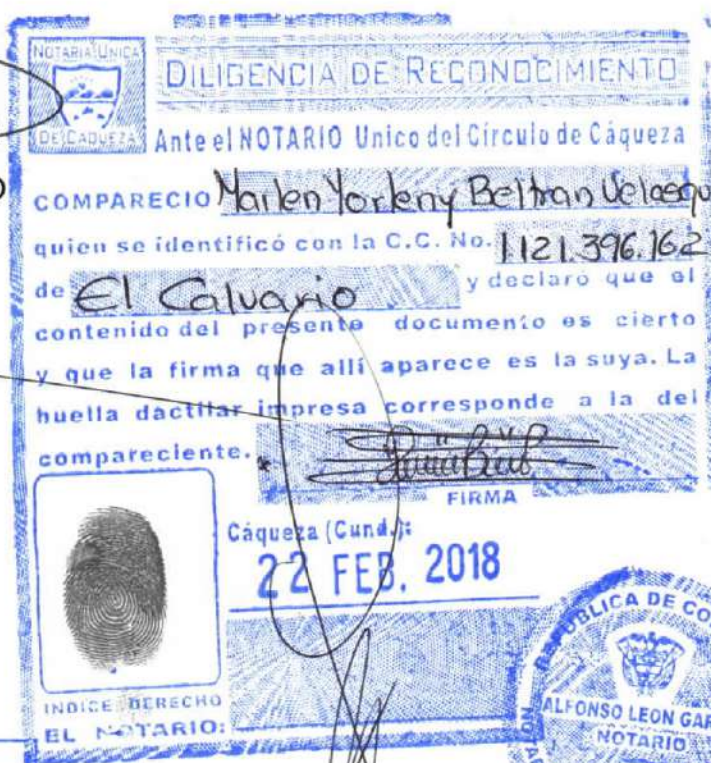 NOTARIA UNICA
DE CAQUEZA
DILIGENCIA DE RECONOCIMIENTO
Ante el NOTARIO Unico del Círculo de Cáqueza
COMPARECIO Marlen Yorleny Beltran Velasqu
quien se identificó con la C.C. No. 1121.396.162
de El Calvario y declaró que el
contenido del presente documento es cierto
y que la firma que allí aparece es la suya. La
huella dactilar impresa corresponde a la del
compareciente.
FIRMA
Cáqueza (Cund.):
22 FEB. 2018
INDICE DERECHO
EL NOTARIO:
REPUBLICA DE CO
ALFONSO LEON GAR
NOTARIO